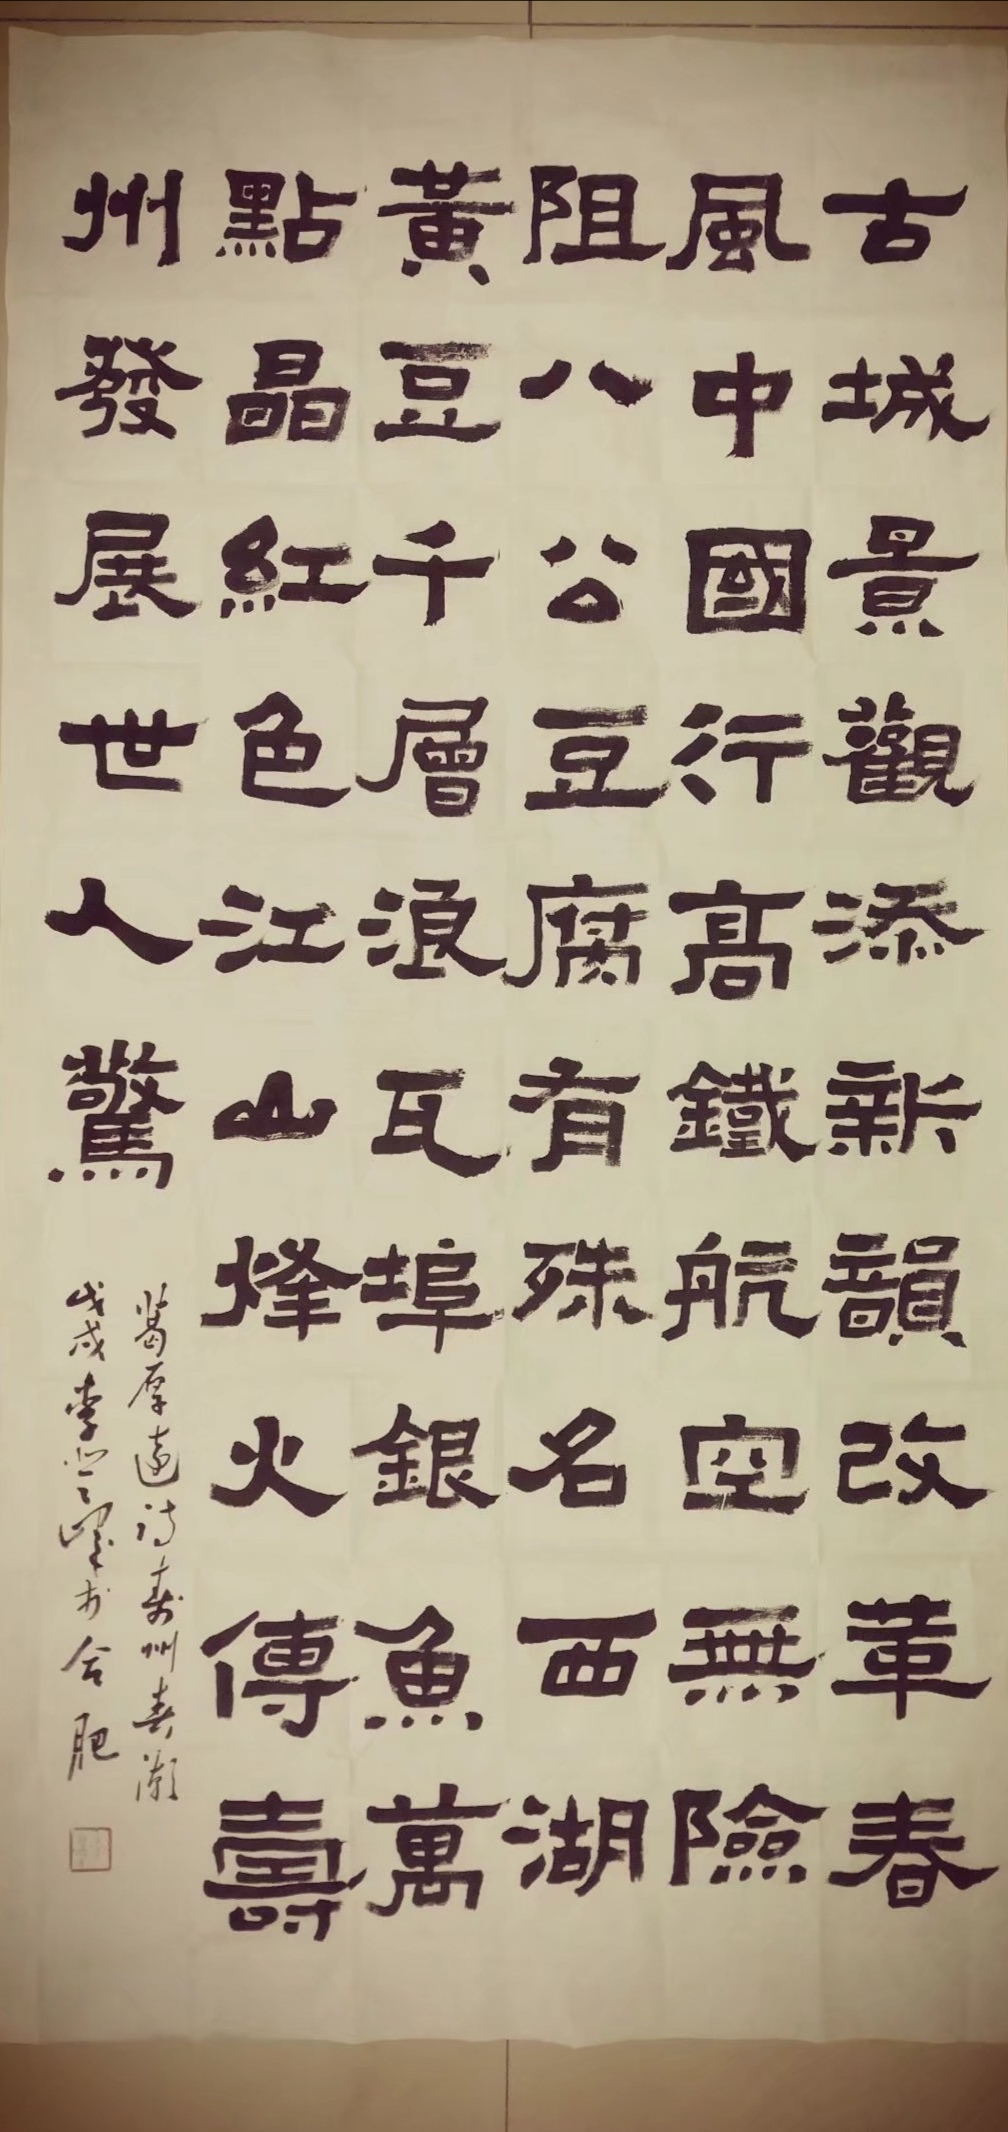 古城景觀添新韻改革春
風中國行高鐵航空無險
阻八公豆腐有殊名西湖
黃豆千層浪瓦埠銀魚萬
點晶紅色江山烽火傳壽
州發展世人驚
葛厚遠詩壽州春潮
戊戌李峰於合肥